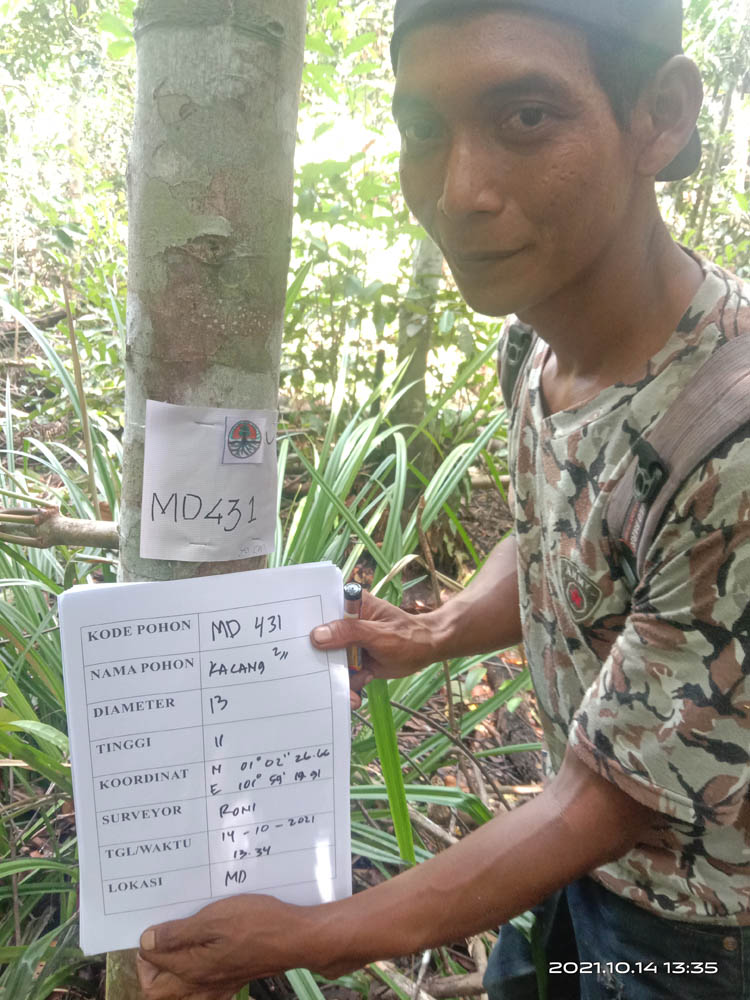 MD431
KODE POHON MD 431
NAMA POHON KACANG ²"
DIAMETER 13
TINGGI 11
KOORDINAT N 01° 02'' 26.66
E 101° 59' 19.91
SURVEYOR RONI
TGL/WAKTU 14-10-2021
13.34
LOKASI MD
2021.10.14 13:35